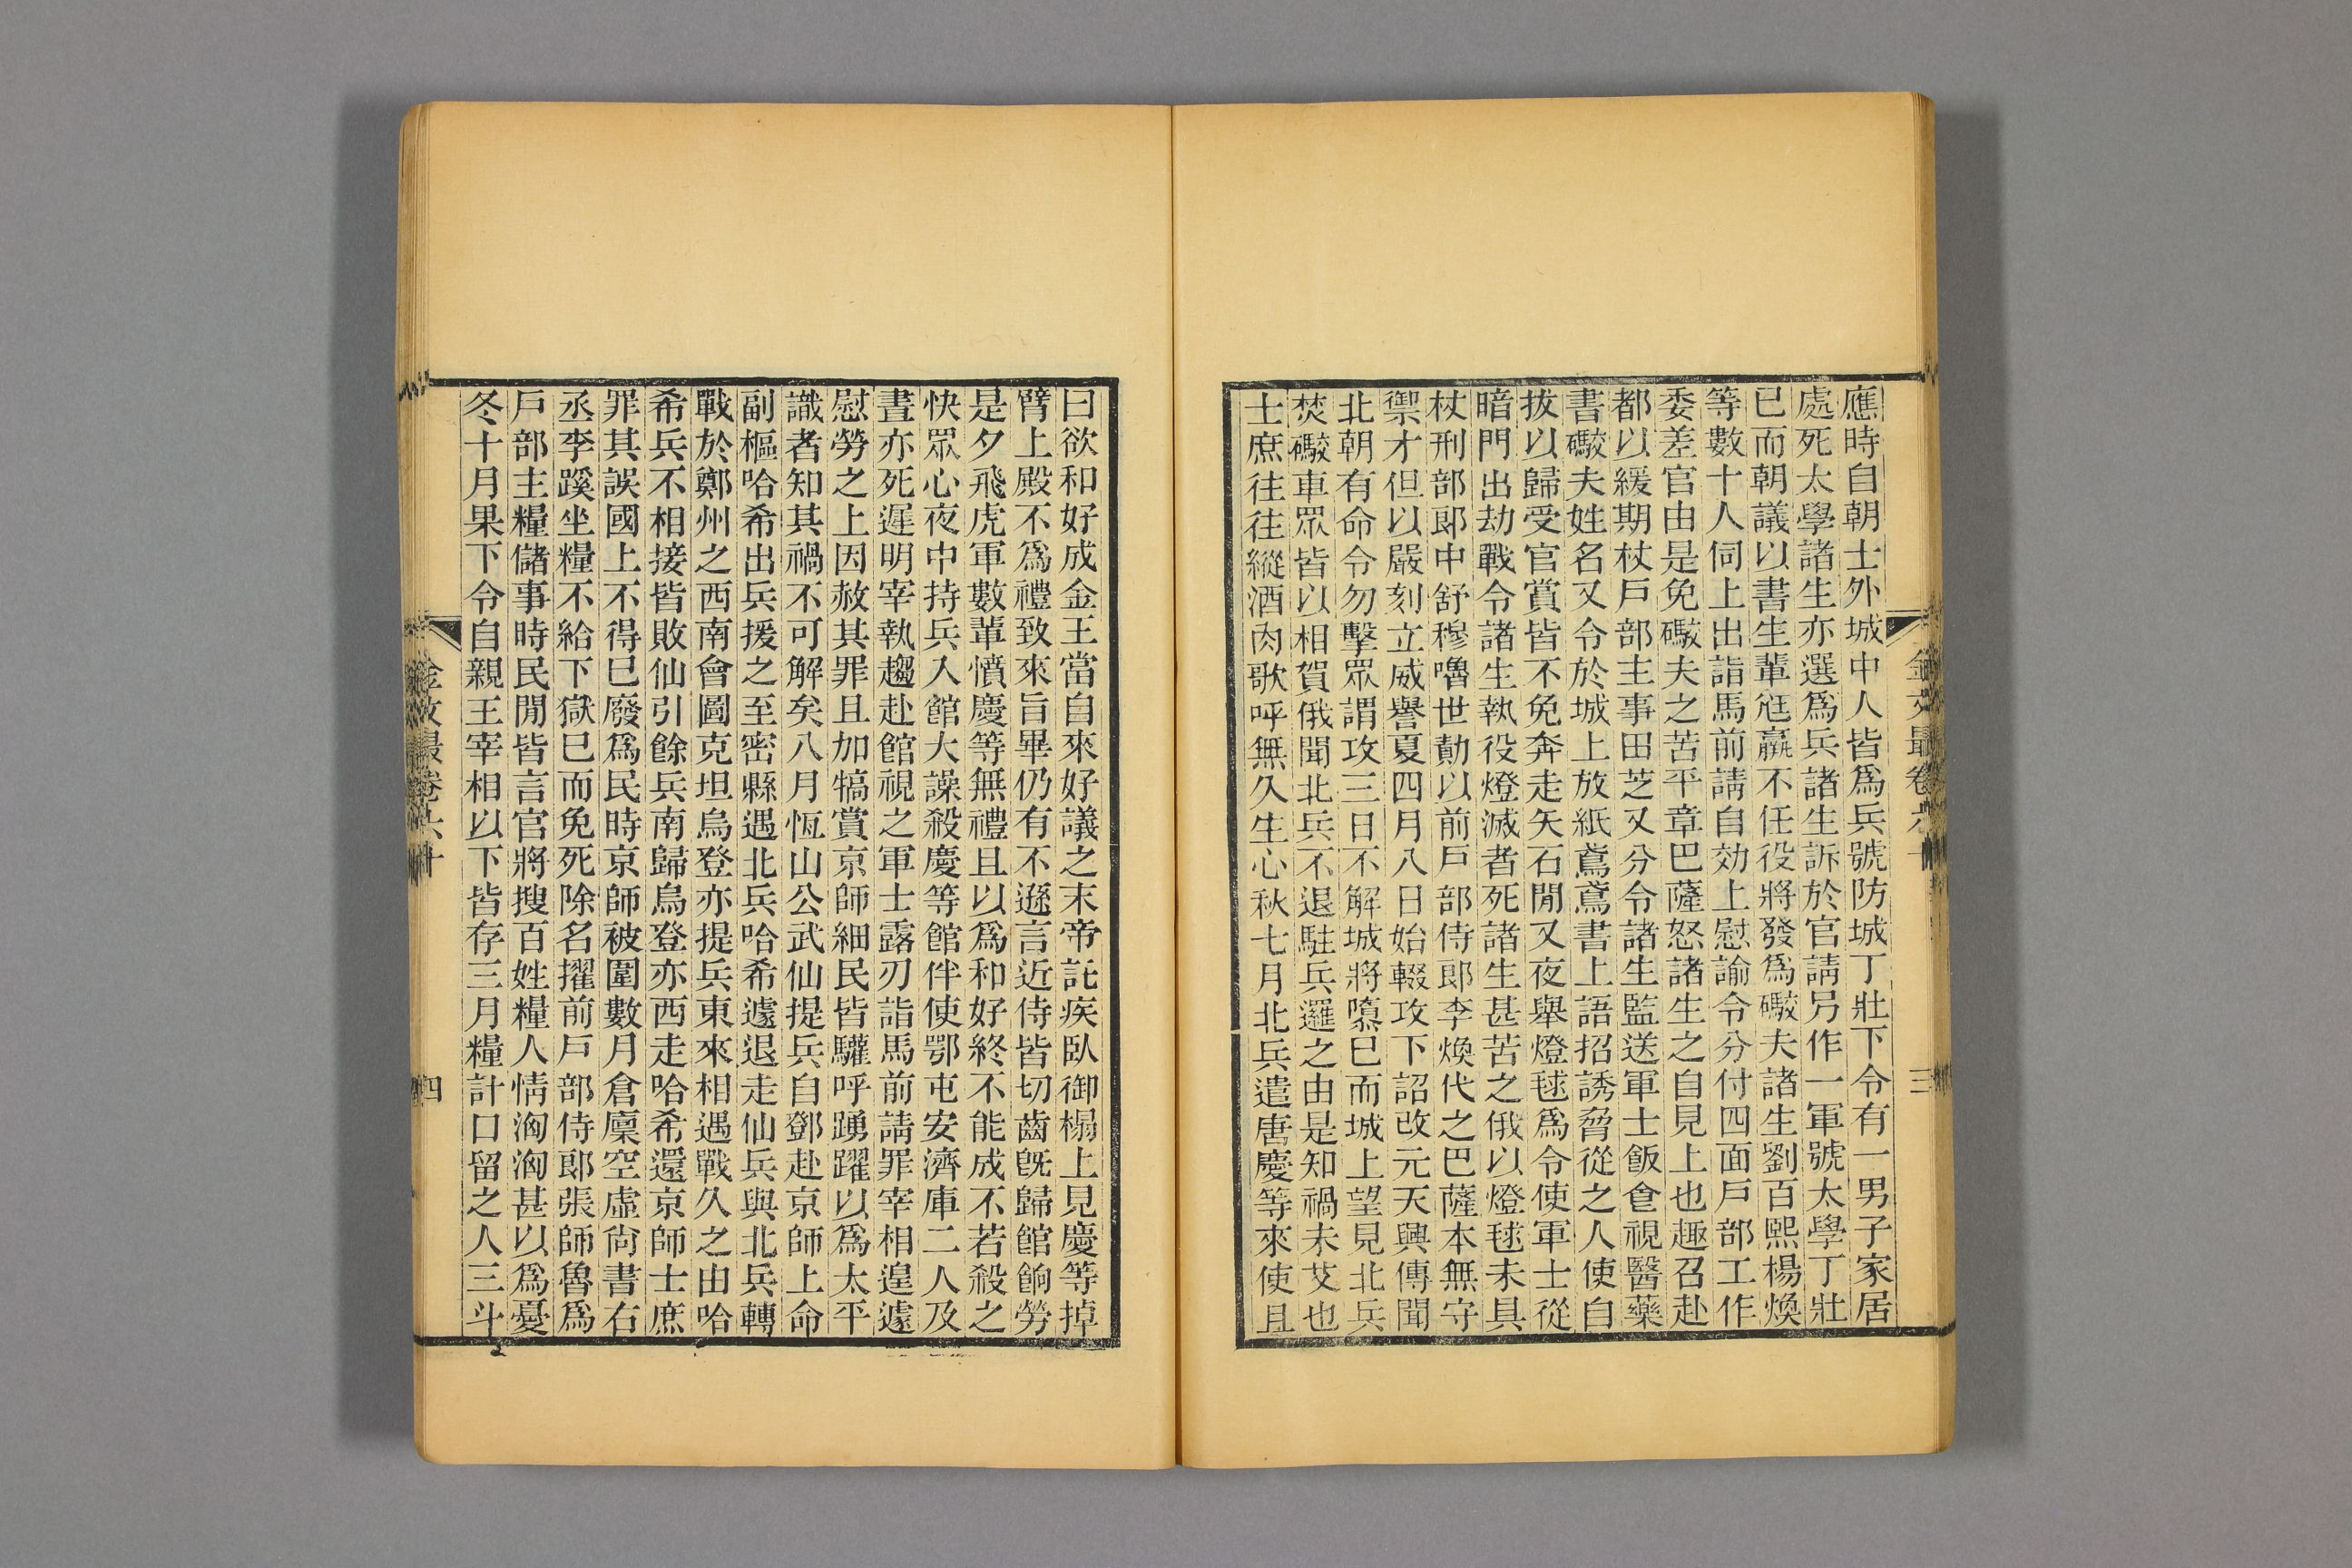 應時自朝士外城中人皆爲兵號防城丁壯下令有一男子家居
處死太學諸生亦選爲兵諸生訴於官請另作一軍號太學丁壯
已而朝議以書生輩尫羸不任役將發爲礮夫諸生劉百熙楊煥
等數十人伺上出詣馬前請自効上慰諭令分付四面戶部工作
委差官由是免礮夫之苦平章巴薩怒諸生之自見上也趣召赴
都以緩期杖戶部主事田芝又分令諸生監送軍士飯食視醫藥
書礮夫姓名又令於城上放紙鳶鳶書上語招誘脅從之人使自
拔以歸受官賞皆不免奔走矢石閒又夜舉燈毬爲令使軍士從
暗門出劫戰令諸生執役燈滅者死諸生甚苦之俄以燈毬未具
杖刑部郞中舒穆嚕世勣以前戶部侍郞李煥代之巴薩本無守
禦才但以嚴刻立威譽夏四月八日始輟攻下詔改元天興傳聞
北朝有命令勿擊眾謂攻三日不解城將隳已而城上望見北兵
焚礮車眾皆以相賀俄聞北兵不退駐兵邏之由是知禍未艾也
士庶往往縱酒肉歌呼無久生心秋七月北兵遣唐慶等來使且
金文最卷六十
三
曰欲和好成金王當自來好議之末帝託疾臥御榻上見慶等掉
臂上殿不爲禮致來旨畢仍有不遜言近侍皆切齒旣歸館餉勞
是夕飛虎軍數輩憤慶等無禮且以爲和好終不能成不若殺之
快眾心夜中持兵入館大譟殺慶等館伴使鄂屯安濟庫二人及
晝亦死遲明宰執趨赴館視之軍士露刃詣馬前請罪宰相遑遽
慰勞之上因赦其罪且加犒賞京師細民皆驩呼踴躍以爲太平
識者知其禍不可解矣八月恆山公武仙提兵自鄧赴京師上命
副樞哈希出兵援之至密縣遇北兵哈希遽退走仙兵與北兵轉
戰於鄭州之西南會圖克坦烏登亦提兵東來相遇戰久之由哈
希兵不相接皆敗仙引餘兵南歸烏登亦西走哈希還京師士庶
罪其誤國上不得已廢爲民時京師被圍數月倉廩空虛尙書右
丞李蹊坐糧不給下獄已而免死除名擢前戶部侍郞張師魯爲
戶部主糧儲事時民閒皆言官將搜百姓糧人情洶洶甚以爲憂
冬十月果下令自親王宰相以下皆存三月糧計口留之人三斗
金文最卷六十
四